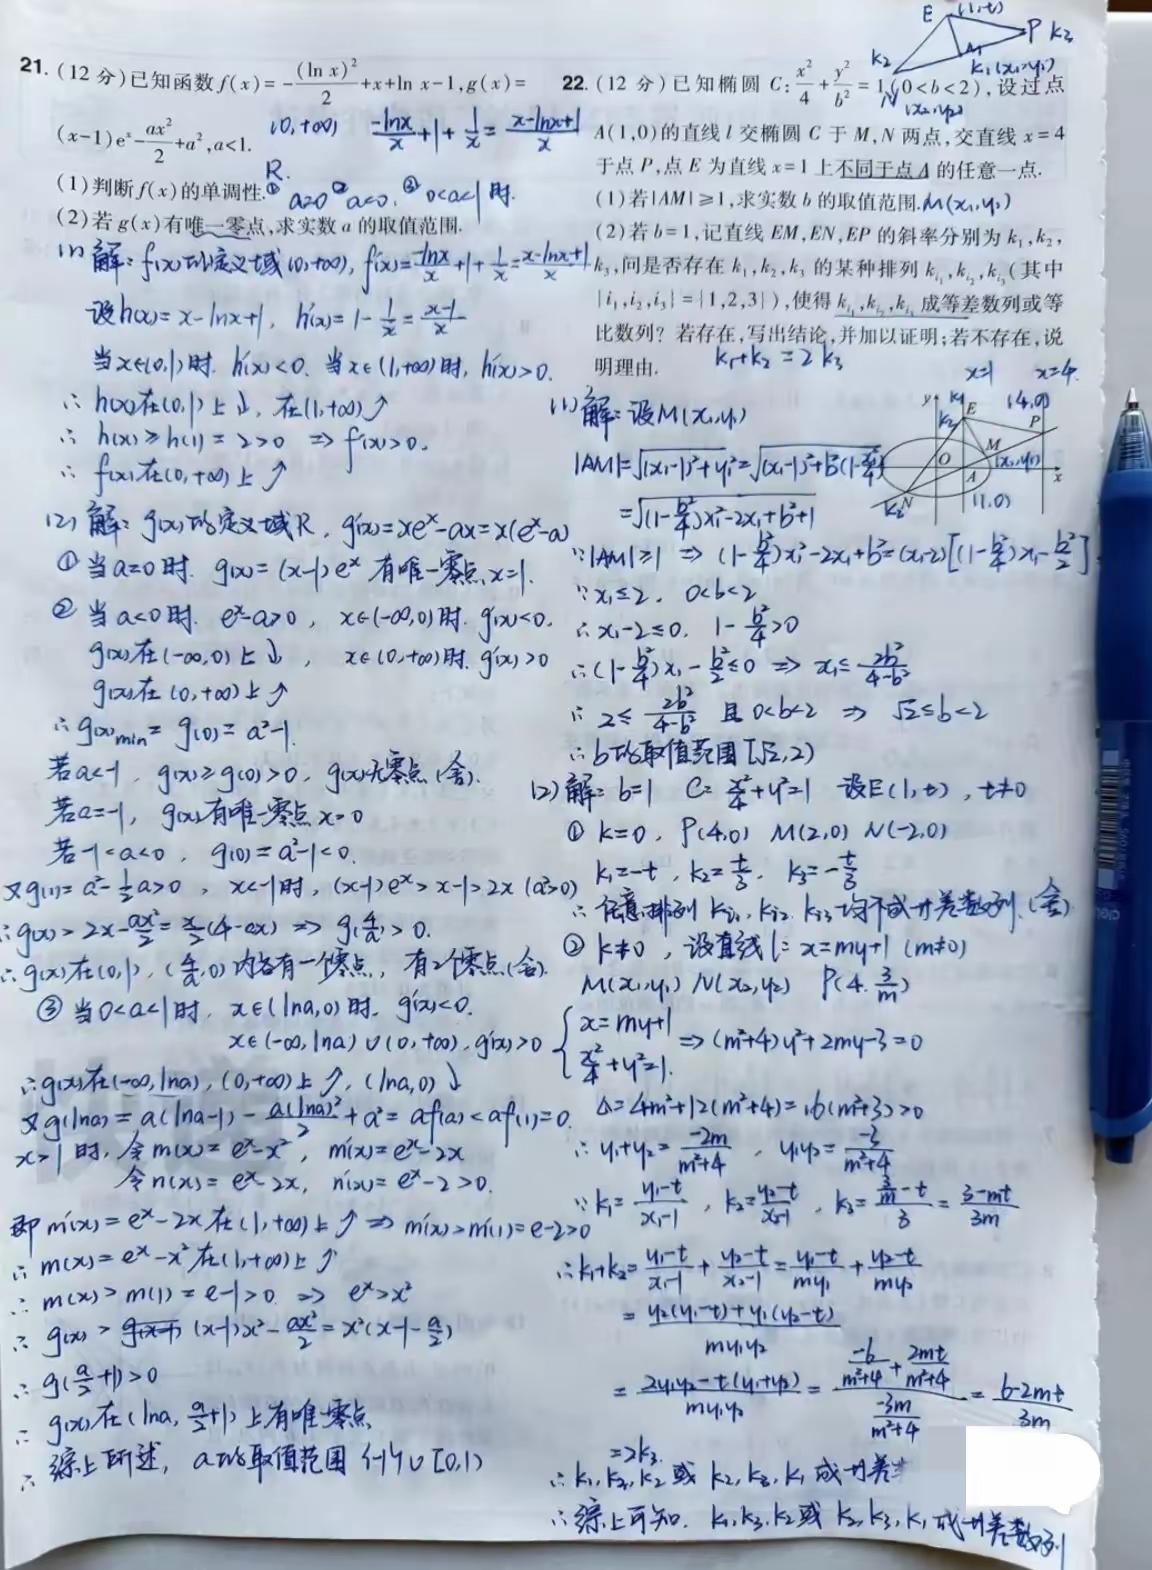 21. (12 分)已知函数 f(x)=-(ln x)²/2+x+ln x-1,g(x)=
(x-1)eˣ-ax²/2+a²,a<1.
(0,+∞) -lnx/x+1+1/x=x-lnx+1/x
R.
(1)判断 f(x)的单调性.① a=0 ② a<0. ③ 0<a<1 时.
(2)若 g(x)有唯一零点,求实数 a 的取值范围.
(1) 解: f(x)的定义域(0,+∞), f'(x)=-lnx/x+1+1/x=x-lnx+1/x
设h(x)=x-lnx+1, h'(x)=1-1/x=x-1/x
当x∈(0,1)时. h'(x)<0. 当x∈(1,+∞)时, h'(x)>0.
∴ h(x)在(0,1)上↓, 在(1,+∞)↗
∴ h(x)≥h(1)=2>0 ⇒ f'(x)>0.
∴ f(x)在(0,+∞)上↗
(2) 解: g(x)的定义域R, g'(x)=xeˣ-ax=x(eˣ-a)
① 当a=0时. g(x)=(x-1)eˣ 有唯一零点 x=1.
② 当a<0时. eˣ-a>0, x∈(-∞,0)时. g'(x)<0.
g(x)在(-∞,0)上↓, x∈(0,+∞)时. g'(x)>0
g(x)在(0,+∞)上↗
∴ g(x)min=g(0)=a²-1.
若a<-1, g(x)≥g(0)>0, g(x)无零点(舍).
若a=-1, g(x)有唯一零点 x=0
若-1<a<0, g(0)=a²-1<0.
又g(1)=a²-1/2a>0, x<-1时, (x-1)eˣ>x-1>2x (a²>0)
∴g(x)>2x-ax²/2=x/2(4-ax) ⇒ g(4/a)>0.
∴g(x)在(0,1), (4/a,0)内各有一个零点, 有2个零点(舍).
③ 当0<a<1时, x∈(lna,0)时. g'(x)<0.
x∈(-∞,lna)∪(0,+∞), g'(x)>0
∴g(x)在(-∞,lna), (0,+∞)上↗, (lna,0)↓
又g(lna)=a(lna-1)-a(lna)²/2+a²=af(a)<af(1)=0.
x>1时, 令m(x)=eˣ-x², m'(x)=eˣ-2x
令n(x)=eˣ-2x, n'(x)=eˣ-2>0.
即m'(x)=eˣ-2x在(1,+∞)上↗ ⇒ m'(x)>m'(1)=e-2>0
∴ m(x)=eˣ-x²在(1,+∞)上↗
∴ m(x)>m(1)=e-1>0 ⇒ eˣ>x²
∴ g(x)> (x-1)x²-ax²/2=x²(x-1-a/2)
∴ g(a/2+1)>0
∴ g(x)在(lna, a/2+1)上有唯一零点
∴ 综上所述, a的取值范围{-1}∪[0,1)
E (1,t)
P k₃
k₂
M
k₁(x₁,y₁)
N
(x₂,y₂)
22. (12 分)已知椭圆 C:x²/4+y²/b²=1(0<b<2),设过点
A(1,0)的直线 l 交椭圆 C 于 M,N 两点,交直线 x=4
于点 P,点 E 为直线 x=1 上不同于点 A 的任意一点.
(1)若|AM|≥1,求实数 b 的取值范围.M(x₁,y₁)
(2)若 b=1,记直线 EM,EN,EP 的斜率分别为 k₁,k₂,
k₃,问是否存在 k₁,k₂,k₃ 的某种排列 kᵢ₁,kᵢ₂,kᵢ₃(其中
{i₁,i₂,i₃}={1,2,3}),使得 kᵢ₁,kᵢ₂,kᵢ₃ 成等差数列或等
比数列? 若存在,写出结论,并加以证明;若不存在,说
明理由. k₁+k₂=2k₃
x=1 x=4.
y k₁ E (4,0)
k₂ P
M
O (x₁,y₁)
A x
k₂ N (1,0)
(1) 解: 设M(x₁,y₁)
|AM|=√(x₁-1)²+y₁²=√(x₁-1)²+b²(1-x₁²/4)
=√(1-b²/4)x₁²-2x₁+b²+1
∵|AM|≥1 ⇒ (1-b²/4)x₁²-2x₁+b²=(x₁-2)[(1-b²/4)x₁-b²/2]
∵ x₁≤2, 0<b<2
∴ x₁-2≤0, 1-b²/4>0
∴ (1-b²/4)x₁-b²/2≤0 ⇒ x₁≤2b²/4-b²
∴ 2≤2b²/4-b² 且 0<b<2 ⇒ √2≤b<2
∴ b的取值范围[√2,2)
(2) 解: b=1 C=x²/4+y²=1 设E(1,t), t≠0
① k=0, P(4,0) M(2,0) N(-2,0)
k₁=-t, k₂=t/3, k₃=-t/3
∴ 任意排列 kᵢ₁,kᵢ₂,kᵢ₃均不成等差数列.(舍)
② k≠0, 设直线l: x=my+1 (m≠0)
M(x₁,y₁) N(x₂,y₂) P(4,3/m)
{x=my+1
x²/4+y²=1. ⇒ (m²+4)y²+2my-3=0
Δ=4m²+12(m²+4)=16(m²+3)>0
∴ y₁+y₂=-2m/m²+4, y₁y₂=-3/m²+4
∵ k₁=y₁-t/x₁-1, k₂=y₂-t/x₂-1, k₃=3/m-t/3=3-mt/3m
∴k₁+k₂=y₁-t/x₁-1+y₂-t/x₂-1=y₁-t/my₁+y₂-t/my₂
=y₂(y₁-t)+y₁(y₂-t)/my₁y₂
=2y₁y₂-t(y₁+y₂)/my₁y₂=-6/m²+4+2mt/m²+4/-3m/m²+4=6-2mt/3m
=2k₃.
∴ k₁,k₃,k₂ 或 k₂,k₃,k₁ 成等差
∴ 综上可知. k₁,k₃,k₂或 k₂,k₃,k₁ 成等差数列